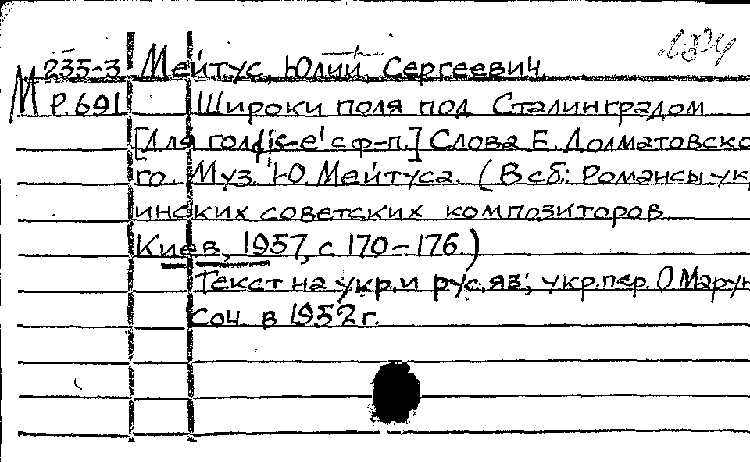 184
235-3 Мейтус, Юлий Сергеевич
М Р.691 Широки поля под Сталинградом
[Для гол/с-e¹ с ф-п.] Слова Е. Долматовско
го. Муз. Ю. Мейтуса. (В сб: Романсы укр
инских советских композиторов
Киев, 1957, с. 170-176.)
Текст на укр. и рус. яз; укр. пер. О Марун
Соч. в 1952 г.